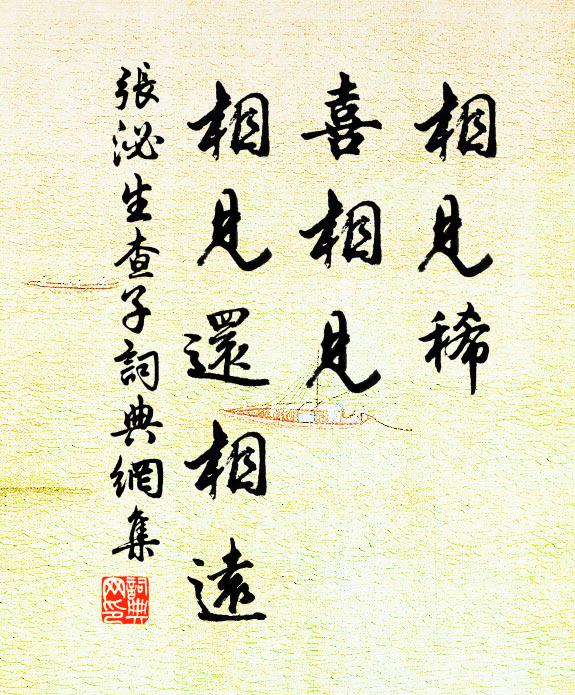 相見稀
喜相見
相見還相遠
張泌生查子詞典網集
詞典網印